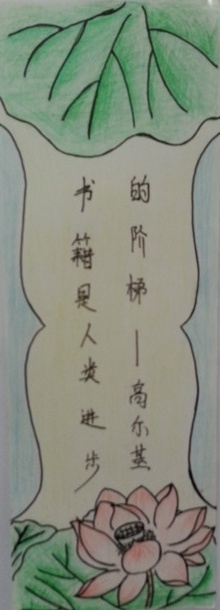 书籍是人类进步
的阶梯—高尔基